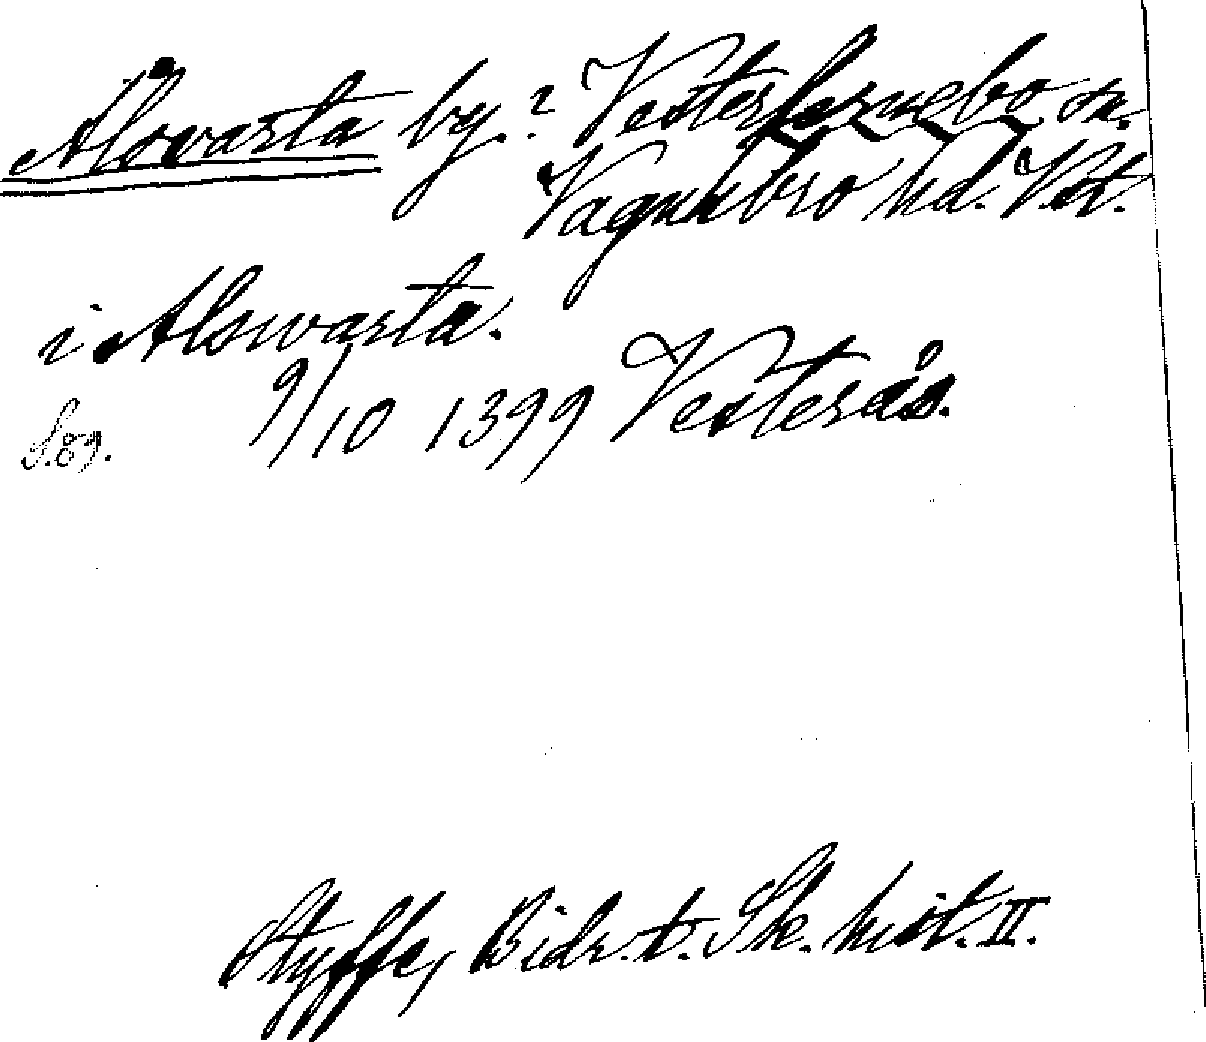 Ålsvarta by.? Vesterfernebo sn.
Vagnsbro hd. Vst.
i Alswarta.
9/10 1399 Vesterås.
S.89.
Styffe, Bidr. t. Sk. hist. II.